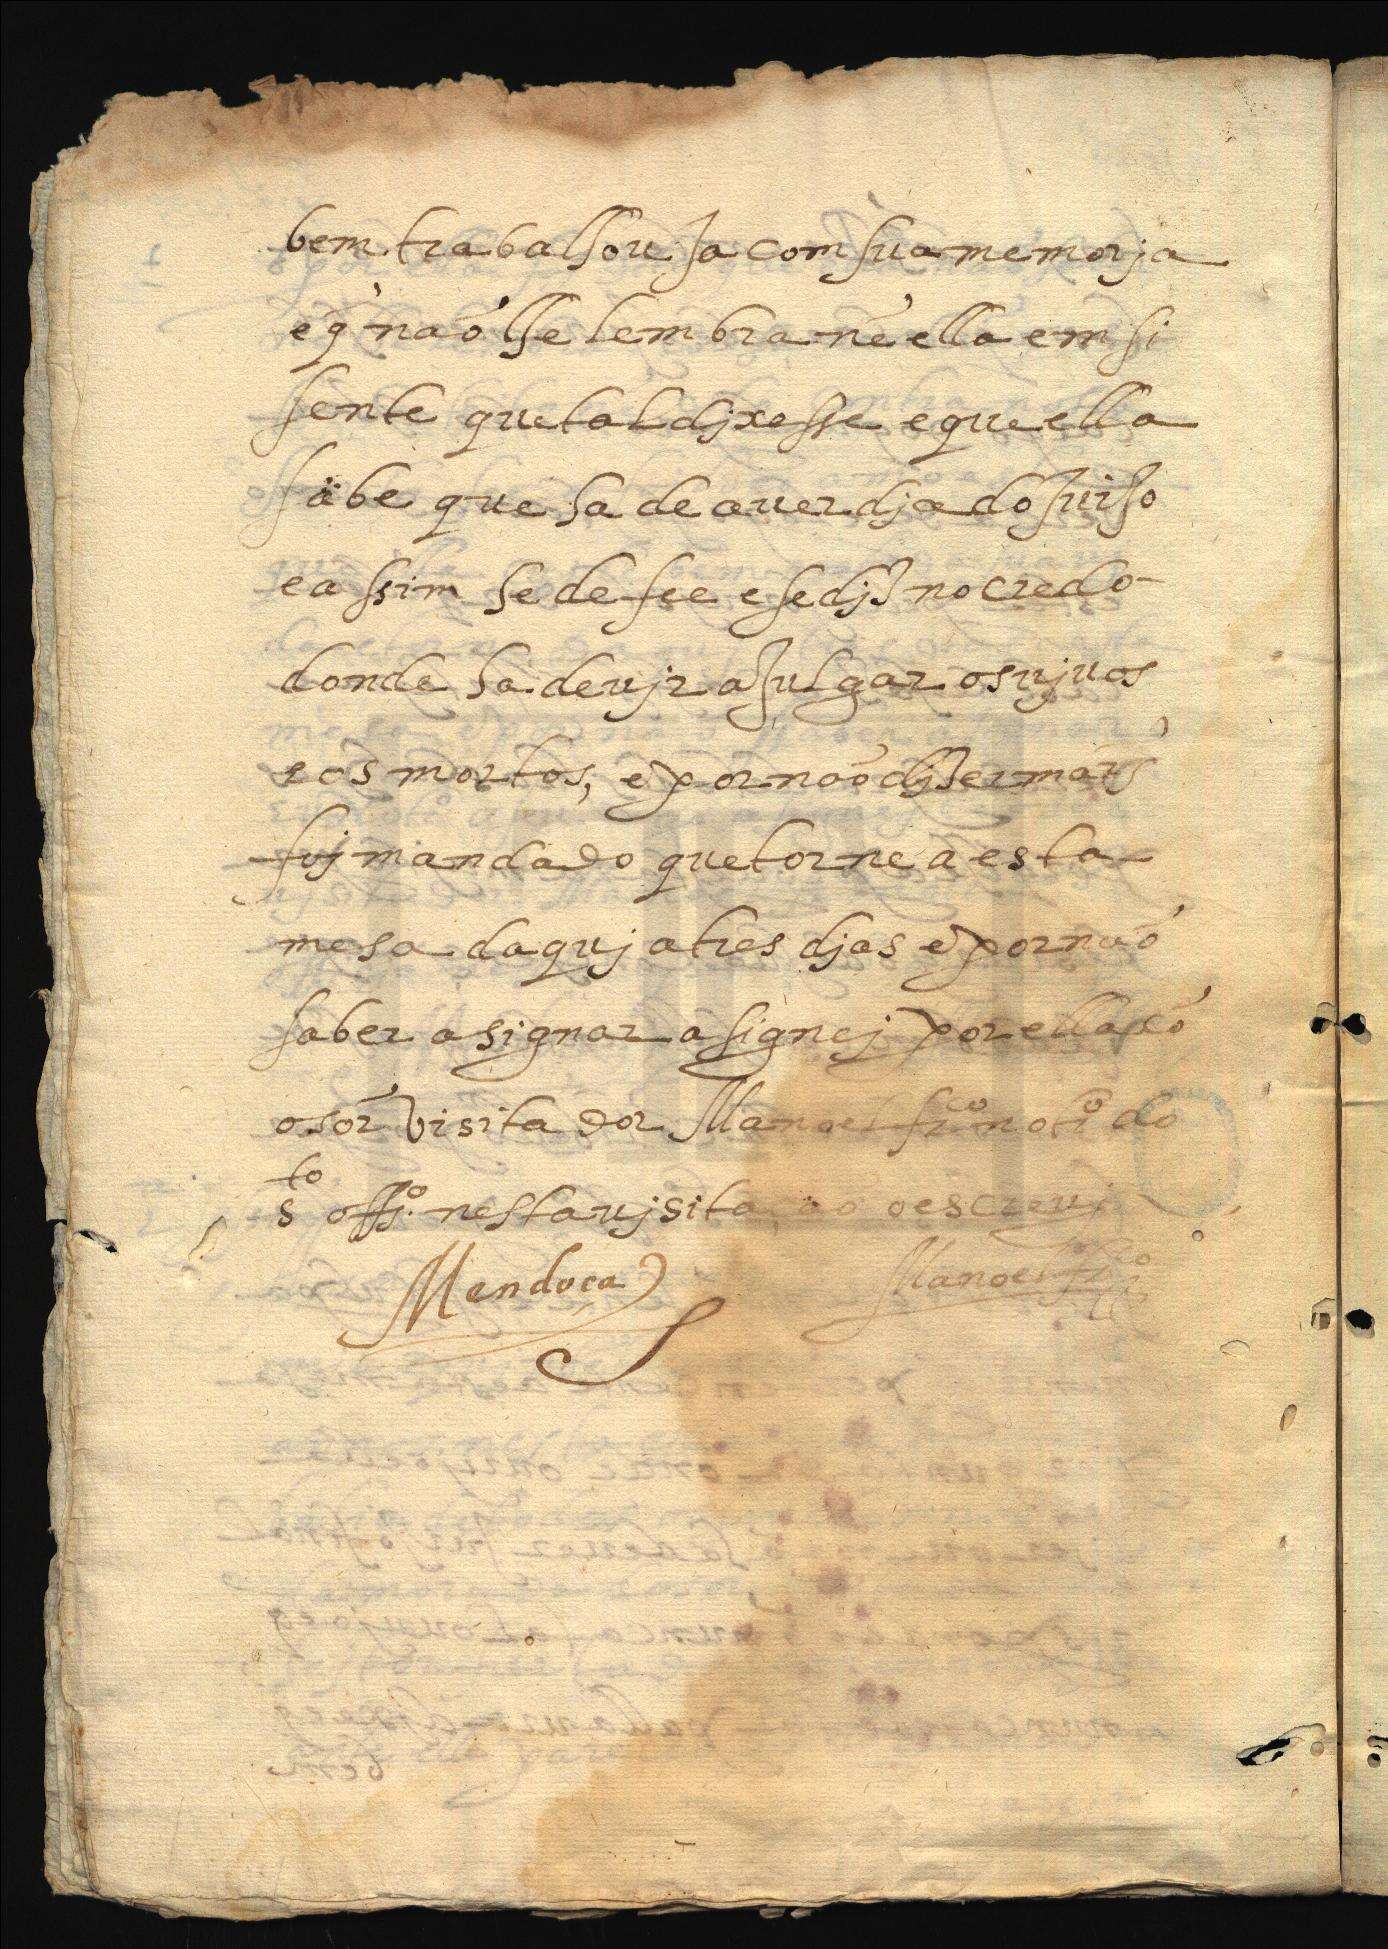 bem trabalhou ja com sua memorja
e q̃ não lhe lembra nẽ ella em si
sente que tal djxesse e que ella
sabe que ha de auer dja do juizo
e assim he de fee e se djz no credo
donde ha de vjr a julgar os vjuos
e os mortos, e por não djzer mais
fuj mandado que torne a esta
mesa daquj a tres djas e por não
saber asignar asignej por ella cõ
o sõr visitador Manoel frco notro do
sto offjo nesta vjsitação o escrevi
Mendoça Manoel frco